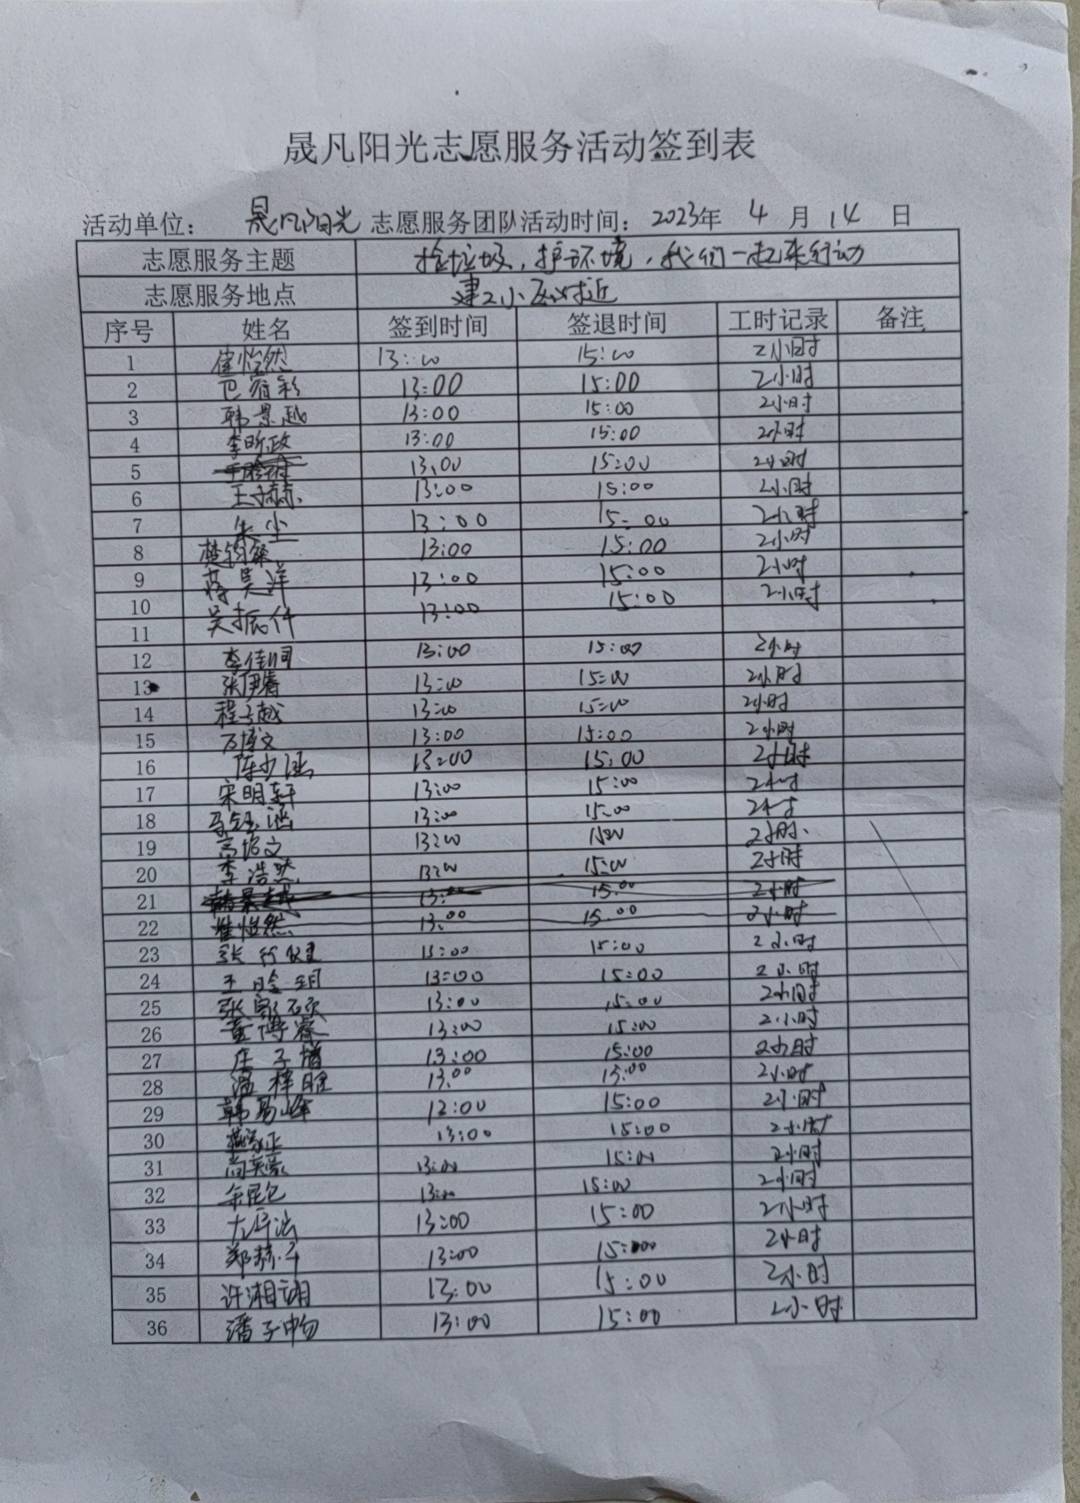 晟凡阳光志愿服务活动签到表
活动单位： 晟凡阳光 志愿服务团队活动时间：2023年 4 月 14 日
志愿服务主题 捡垃圾，护环境，我们一起来行动
志愿服务地点 建工小区附近
序号 姓名 签到时间 签退时间 工时记录 备注
1 崔怡然 13:00 15:00 2小时
2 巴 13:00 15:00 2小时
3 韩景越 13:00 15:00 2小时
4 李昕政 13:00 15:00 2小时
5 13:00 15:00 2小时
6 王 13:00 15:00 2小时
7 朱尘 13:00 15:00 2小时
8 楚钧 13:00 15:00 2小时
9 蒋昊洋 13:00 15:00 2小时
10 吴振仟 13:00 15:00 2小时
11
12 李佳 13:00 15:00 2小时
13 张伊睿 13:00 15:00 2小时
14 程子越 13:00 15:00 2小时
15 万博文 13:00 15:00 2小时
16 陈少涵 13:00 15:00 2小时
17 宋明轩 13:00 15:00 2小时
18 涵 13:00 15:00 2小时
19 高 文 13:00 15:00 2小时
20 李浩然 13:00 15:00 2小时
21 韩景越 13:00 15:00 2小时
22 崔怡然 13:00 15:00 2小时
23 张行健 13:00 15:00 2小时
24 王晗玥 13:00 15:00 2小时
25 张 硕 13:00 15:00 2小时
26 董博睿 13:00 15:00 2小时
27 庄子 13:00 15:00 2小时
28 温梓 13:00 15:00 2小时
29 韩易峰 12:00 15:00 2小时
30 13:00 15:00 2小时
31 尚英豪 13:00 15:00 2小时
32 13:00 15:00 2小时
33 13:00 15:00 2小时
34 郑赫 13:00 15:00 2小时
35 许湘翊 13:00 15:00 2小时
36 潘子 13:00 15:00 2小时